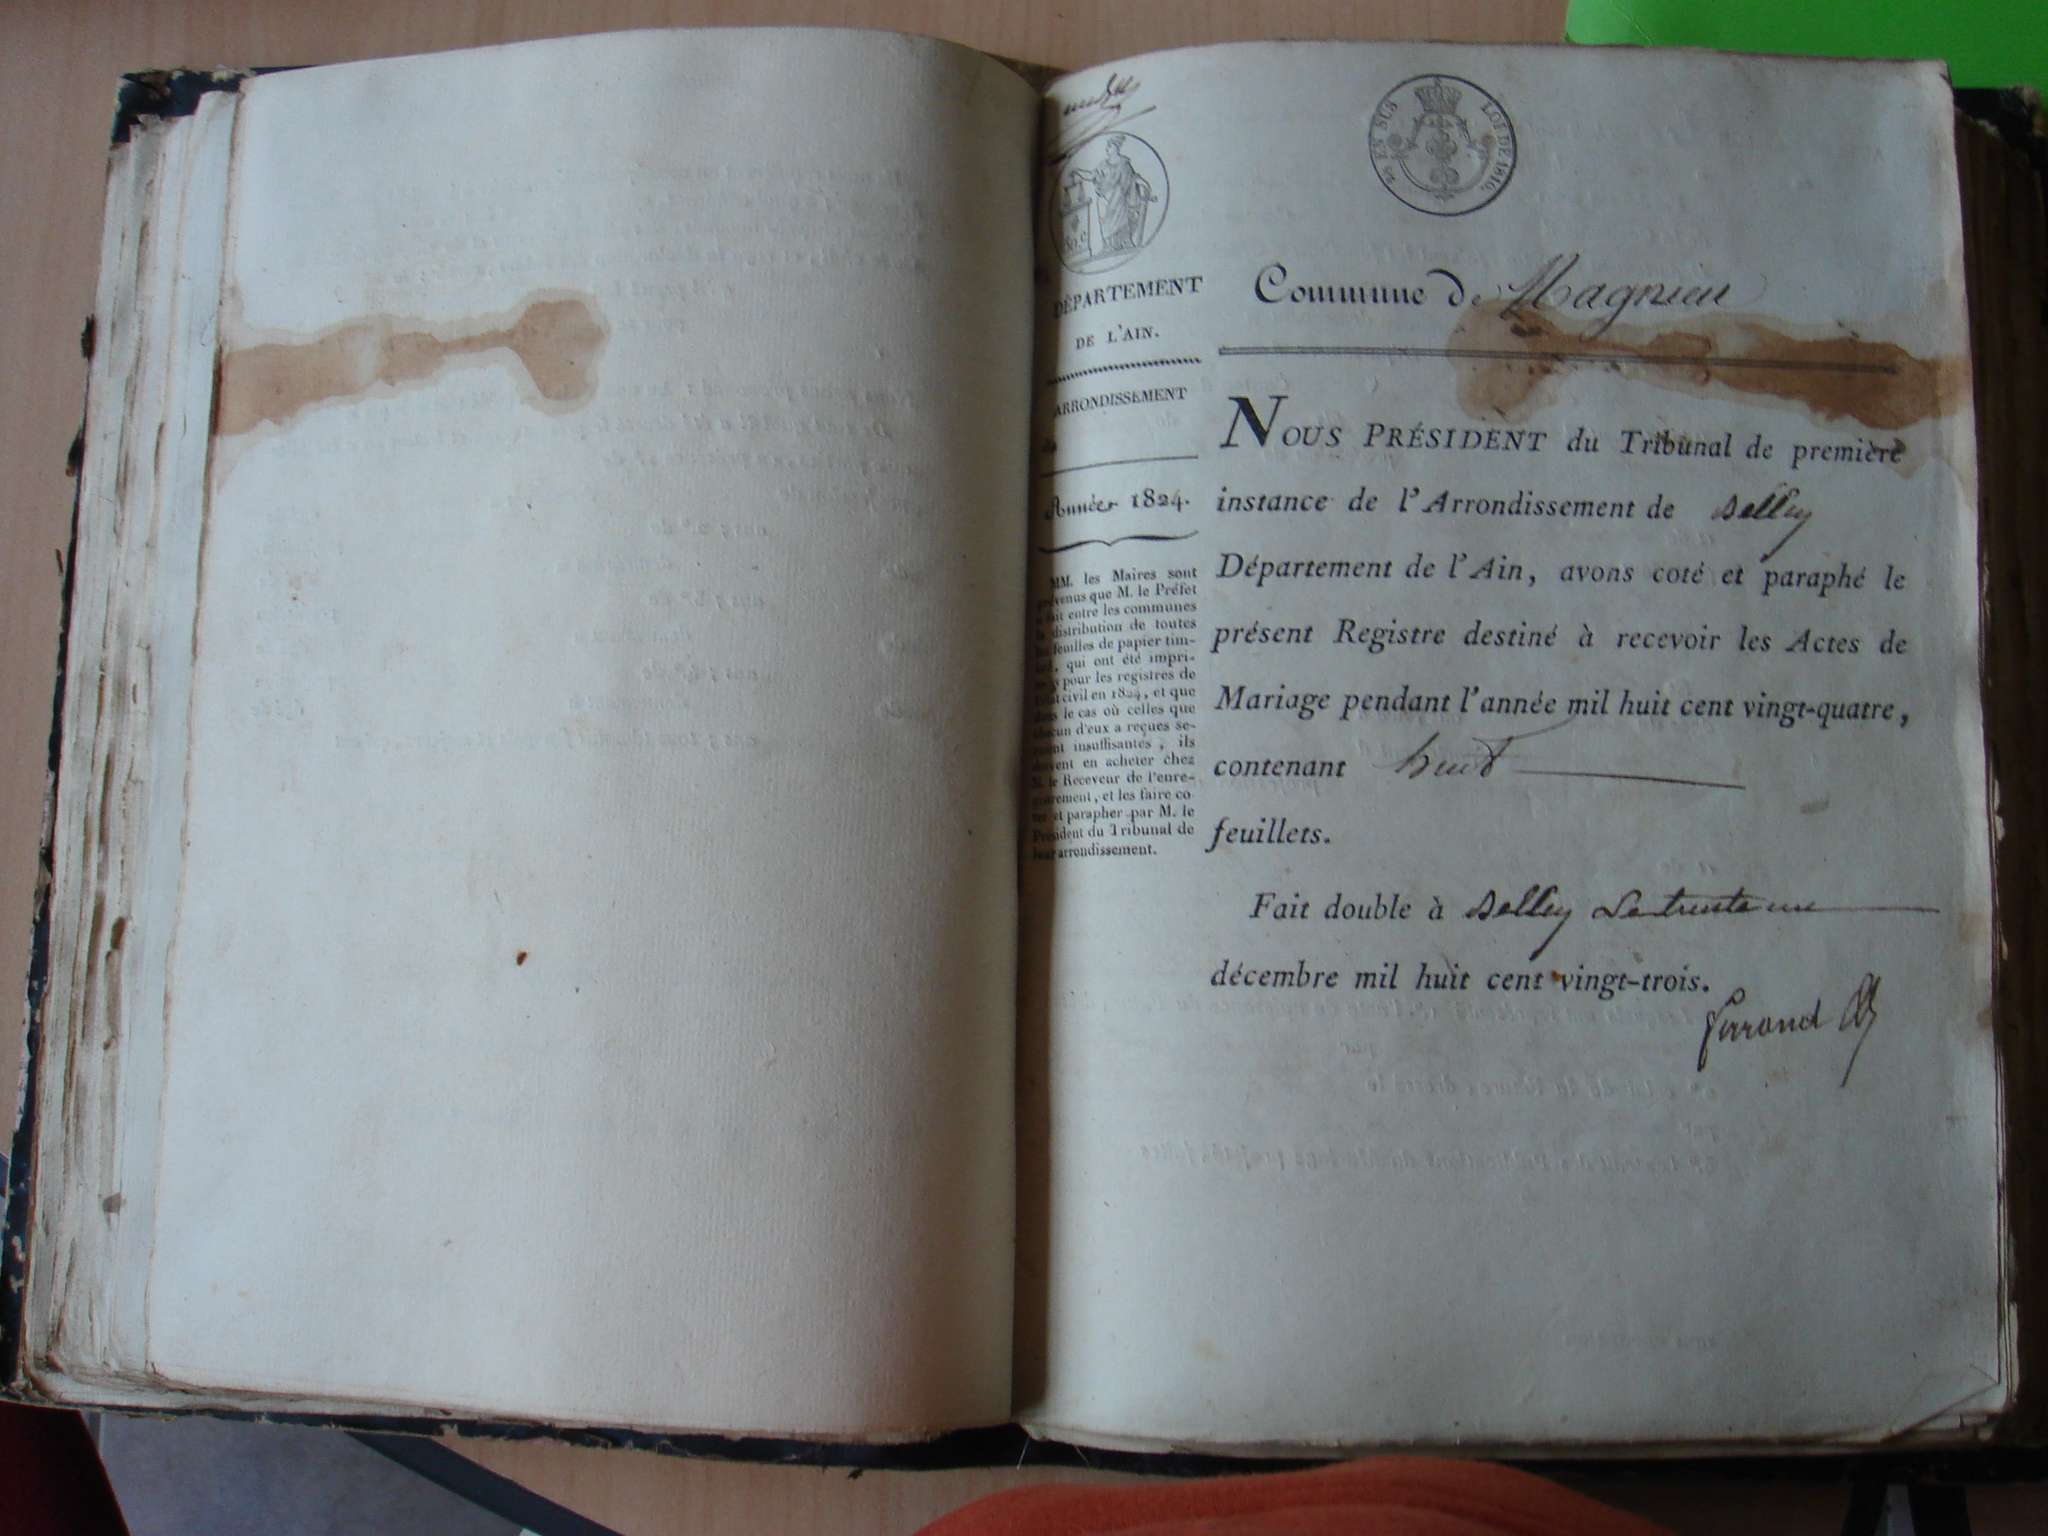 EN SUS LOI DE 1816.
50. c
DÉPARTEMENT
DE L'AIN.
ARRONDISSEMENT
de
Année 1824.
MM. les Maires sont
prévenus que M. le Préfet
a fait entre les communes
la distribution de toutes
les feuilles de papier tim-
bré, qui ont été impri-
mées pour les registres de
l'état civil en 1824, et que
dans le cas où celles que
chacun d'eux a reçues se-
raient insuffisantes, ils
doivent en acheter chez
M. le Receveur de l'enre-
gistrement, et les faire co-
ter et parapher par M. le
Président du Tribunal de
leur arrondissement.
Commune de Magnieu
NOUS PRÉSIDENT du Tribunal de première
instance de l'Arrondissement de Belley
Département de l'Ain, avons coté et paraphé le
présent Registre destiné à recevoir les Actes de
Mariage pendant l'année mil huit cent vingt-quatre,
contenant huit
feuillets.
Fait double à Belley Le trente un
décembre mil huit cent vingt-trois.